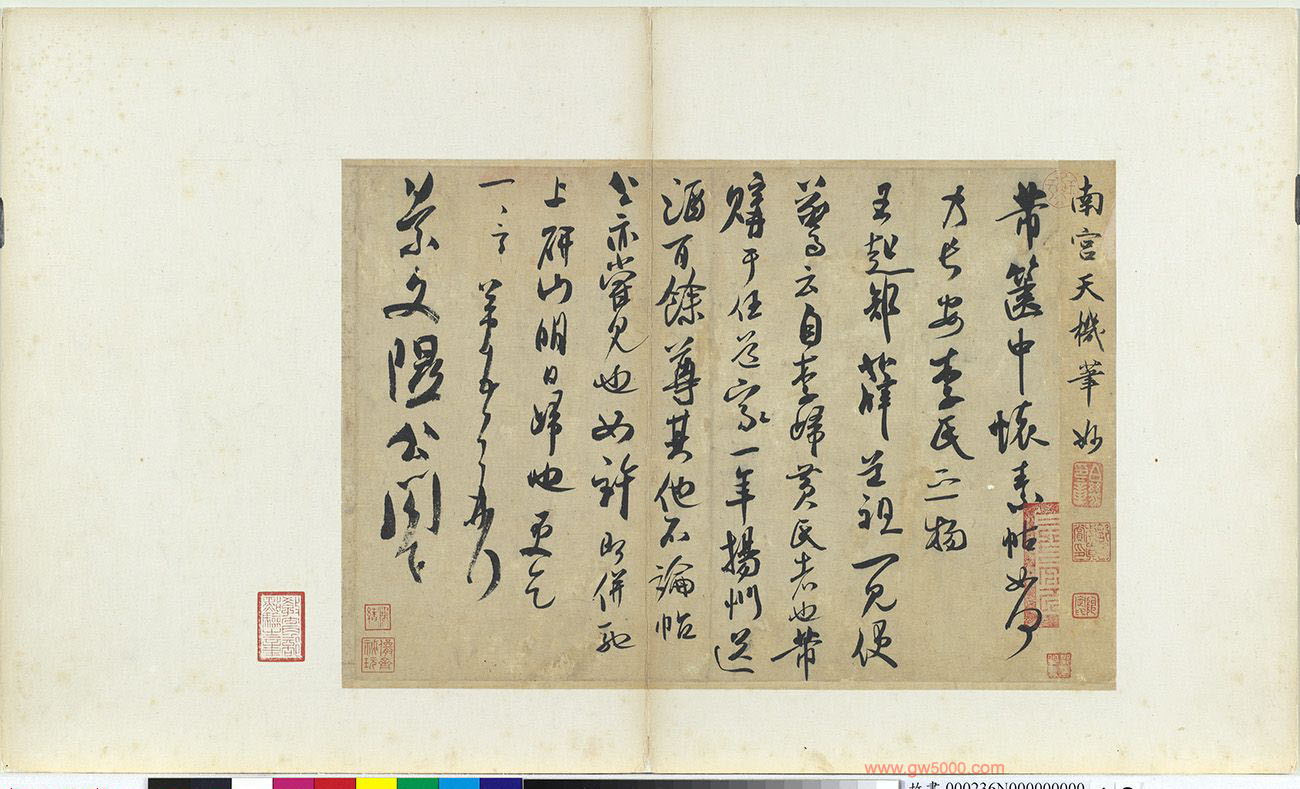 南宮天機筆妙
芾篋中懷素帖如何
乃長安李氏之物
王起部薛道祖一見便
驚云自李歸黃氏者也芾
購于任道家一年揚州送
酒百餘尊其他不論帖
公亦嘗見也如許即併馳
上研山明日歸也更乞
一言芾頓首再拜
景文隰公閣下
www.gw5000.com
故書 000236N000000000